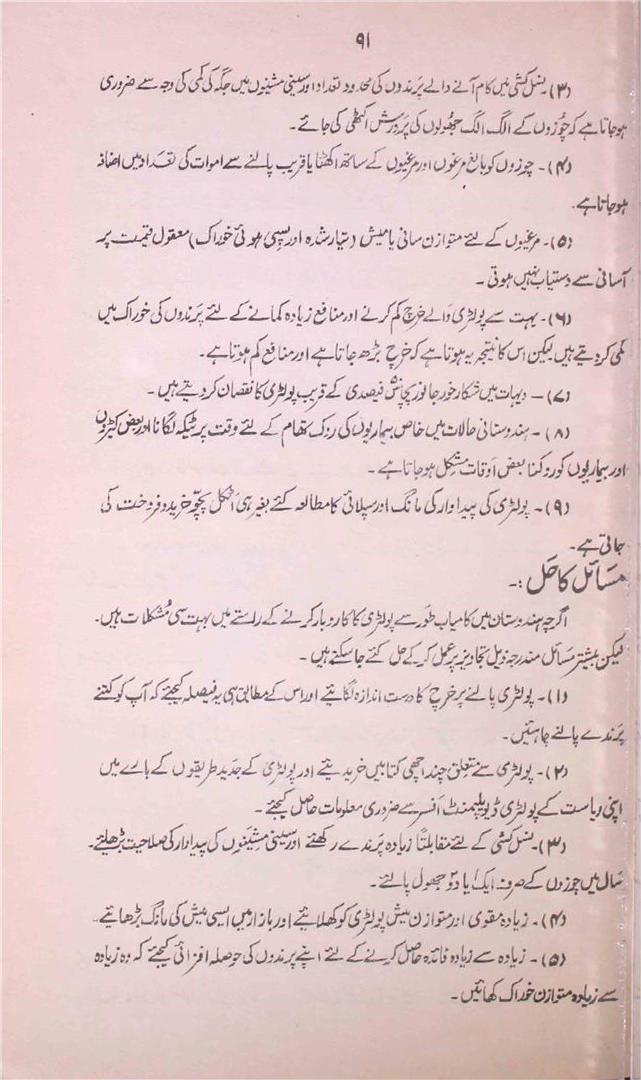 ۹۱
(۳) نسل کشی میں کام آنے والے پرندوں کی محدود تعداد اور سینی مشینوں میں جگہ کی کمی کی وجہ سے ضروری
ہوجاتا ہے کہ چوزوں کے الگ الگ جھولوں کی پرورش اکٹھی کی جائے۔
(۴)۔ چوزوں کو بالغ مرغوں اور مرغیوں کے ساتھ اکٹھا یا قریب پالنے سے اموات کی تعداد میں اضافہ
ہوجاتا ہے۔
(۵)۔ مرغیوں کے لئے متوازن سانی یا میش (تیار شدہ اور پسی ہوئی خوراک) معقول قیمت پر
آسانی سے دستیاب نہیں ہوتی۔
(۶)۔ بہت سے پولٹری والے خرچ کم کرنے اور منافع زیادہ کمانے کے لئے پرندوں کی خوراک میں
کمی کر دیتے ہیں لیکن اس کا نتیجہ یہ ہوتا ہے کہ خرچ بڑھ جاتا ہے اور منافع کم ہوتا ہے۔
(۷)۔ دیہات میں شکار خور جانور پچاس فیصدی کے قریب پولٹری کا نقصان کر دیتے ہیں۔
(۸)۔ ہندوستانی حالات میں خاص بیماریوں کی روک تھام کے لئے وقت پر ٹیکہ لگانا اور بعض کیڑوں
اور بیماریوں کو روکنا بعض اوقات مشکل ہوجاتا ہے۔
(۹)۔ پولٹری کی پیداوار کی مانگ اور سپلائی کا مطالعہ کئے بغیر ہی اٹکل پچو خرید و فروخت کی
جاتی ہے۔
مسائل کا حل :۔
اگرچہ ہندوستان میں کامیاب طور سے پولٹری کا کاروبار کرنے کے راستے میں بہت سی مشکلات ہیں۔
لیکن بیشتر مسائل مندرجہ ذیل تجاویز پر عمل کر کے حل کئے جا سکتے ہیں۔
(۱)۔ پولٹری پالنے پر خرچ کا درست اندازہ لگائیے اور اس کے مطابق ہی یہ فیصلہ کیجئے کہ آپ کو کتنے
پرندے پالنے چاہئیں۔
(۲)۔ پولٹری سے متعلق چند اچھی کتابیں خریدئیے اور پولٹری کے جدید طریقوں کے بارے میں
اپنی ریاست کے پولٹری ڈیولپمنٹ افسر سے ضروری معلومات حاصل کیجئے۔
(۳)۔ نسل کشی کے لئے مقابلتاً زیادہ پرندے رکھئے اور سینی مشینوں کی پیداوار کی صلاحیت بڑھائیے۔
سال میں چوزوں کے صرف ایک یا دو جھول پالئے۔
(۴)۔ زیادہ مقوی اور متوازن میش پولٹری کو کھلائیے اور بازار میں ایسی میش کی مانگ بڑھائیے۔
(۵)۔ زیادہ سے زیادہ فائدہ حاصل کرنے کے لئے اپنے پرندوں کی حوصلہ افزائی کیجئے کہ وہ زیادہ
سے زیادہ متوازن خوراک کھائیں۔